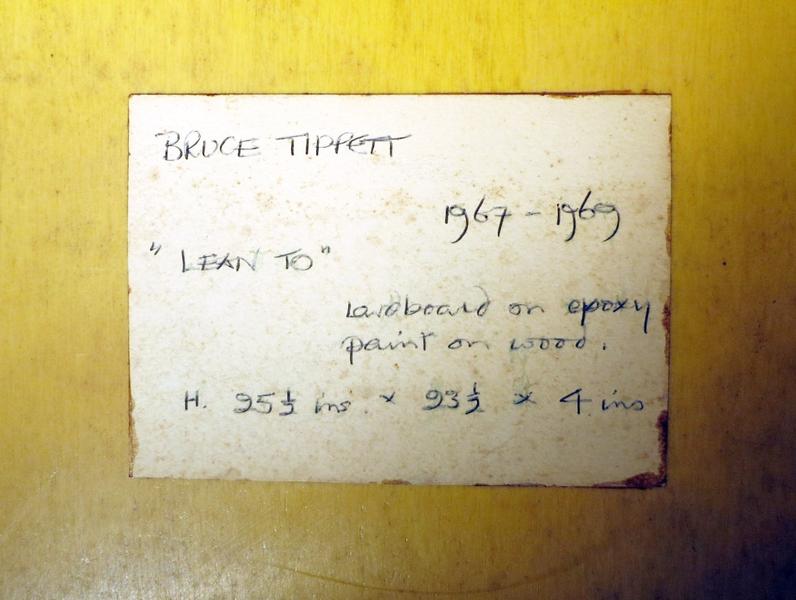 BRUCE TIPPETT
1967 - 1969
"LEAN TO"
cardboard on epoxy
paint on wood.
H. 25½ ins. x 23½ x 4 ins